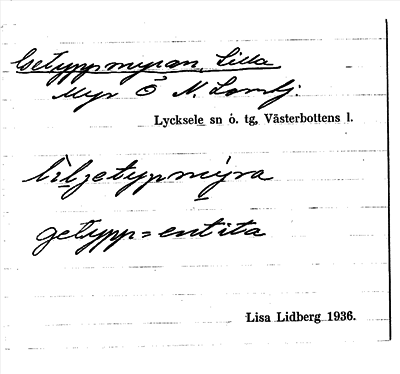 Getyppmyran, Lilla
Myr Ö N. Lomtj.
Lycksele sn o. tg, Västerbottens l.
getypp = entita
Lisa Lidberg 1936.